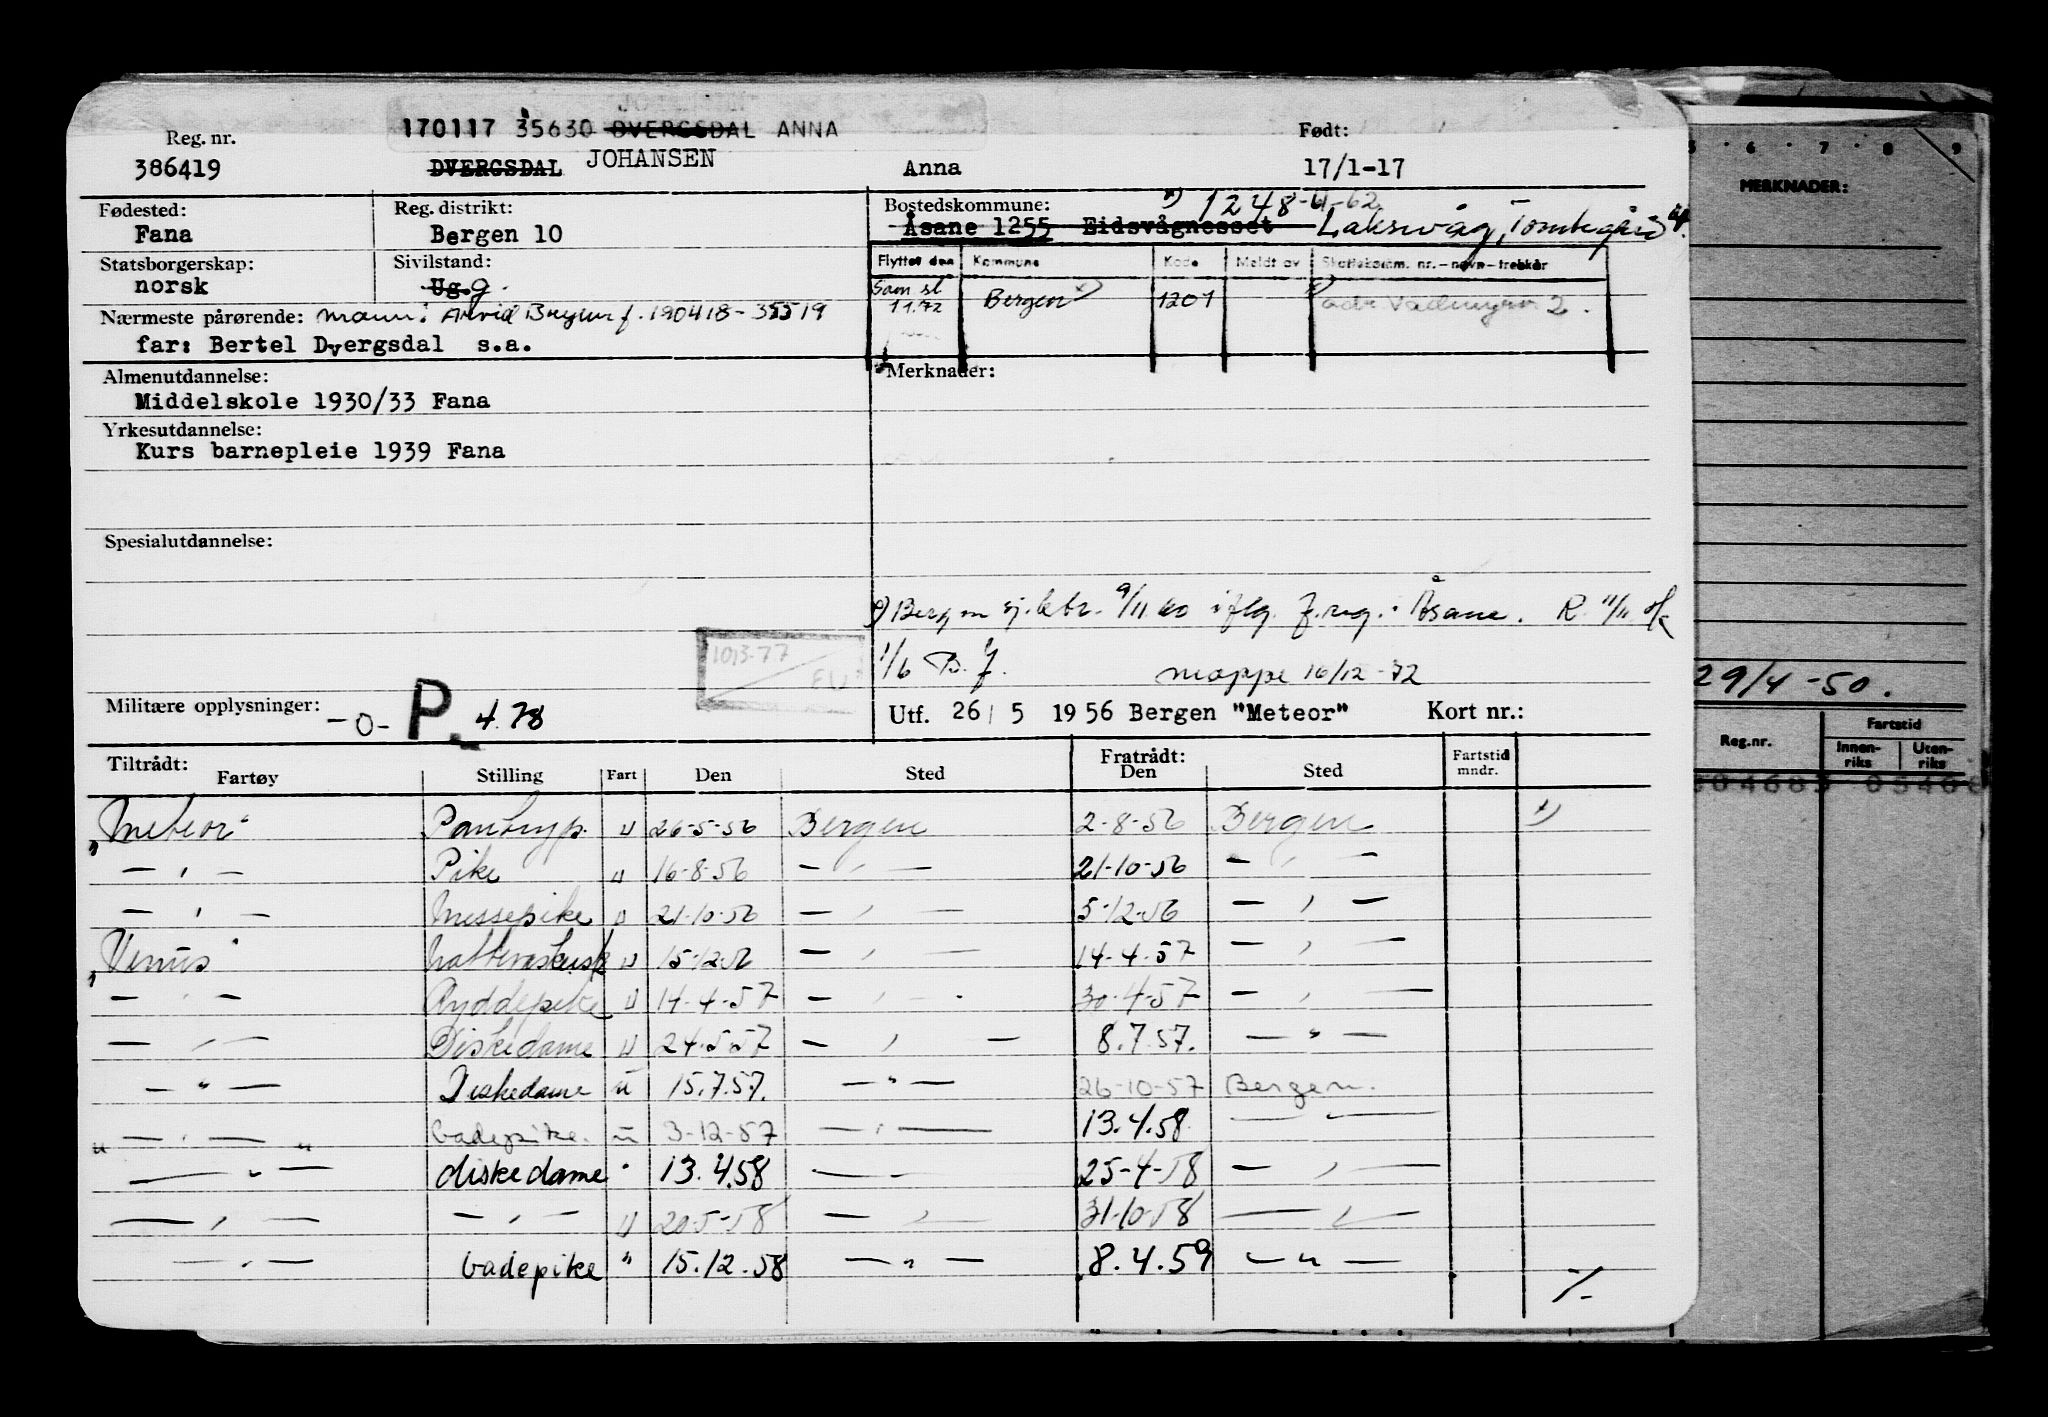 170117 35630 DVERGSDAL ANNA
Reg. nr. Født:
386419 DVERGSDAL JOHANSEN Anna 17/1-17
Fødested: Reg. distrikt: Bostedskommune: 1248 -62
Fana Bergen 10 Åsane 1255 Eidsvågnesset Laksevåg,
Statsborgerskap: Sivilstand: Flyttet den Kommune Kode Meldt av Skattekomm. nr.-navn-trebkår
norsk Ug. g. Sam. sl. 1.1.72 Bergen 1201 adr. 2.
Nærmeste pårørende: mann: Arvid f. 190418-35519
far: Bertel Dvergsdal s.a.
Almenutdannelse: Merknader:
Middelskole 1930/33 Fana
Yrkesutdannelse:
Kurs barnepleie 1939 Fana
Spesialutdannelse:
Bergen 9/11 60 iflg. f.reg. i Åsane. R. 11/11
1013-77
1/6 B.J. mappe 16/12-72
Militære opplysninger: -0- P. 4.78 Utf. 26/5 1956 Bergen "Meteor" Kort nr.:
Tiltrådt: Fratrådt: Fartstid mndr.
Fartøy Stilling Fart Den Sted Den Sted
"Meteor" Pantryp. u 26-5-56 Bergen 2-8-56 Bergen
— " — Pike u 16-8-56 — " — 21-10-56 — " —
— " — Messepike u 21-10-56 — " — 5-12-56 — " —
"Venus" u 15-12-56 — " — 14-4-57 — " —
— " — Ryddepike u 14-4-57 — " — 30-4-57 — " —
— " — Diskedame u 24-5-57 — " — 8.7.57. — " —
— " — Diskedame u 15.7.57. — " — 26-10-57 Bergen.
— " — badepike. u 3-12-57 — " — 13.4.58. — " —
— " — diskedame " 13.4.58 — " — 25-4-58 — " —
— " — — " — u 20-5-58 — " — 31-10-58 — " —
— " — badepike " 15.12.58 — " — 8.4.59 — " —
6 7 8 9
MERKNADER:
29/4-50.
Reg.nr. Fartstid
Innenriks Utenriks